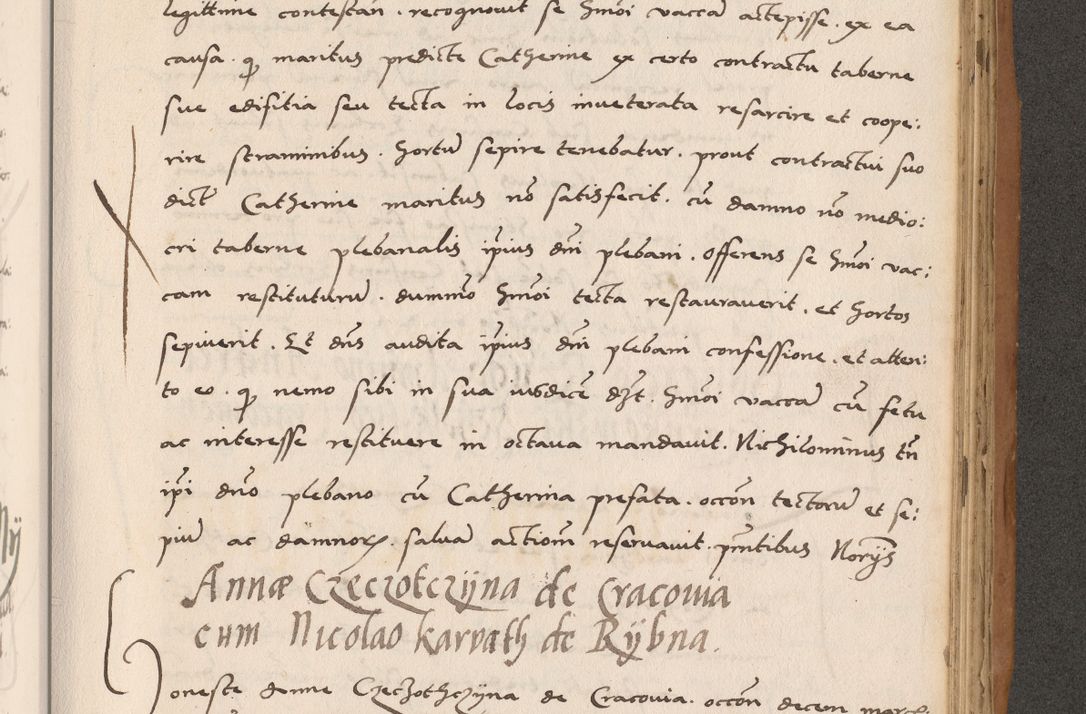 legittime contestan. recognovit se hmoi vaccam accepisse. ex ea
causa. q maritus predicte Catherine ex certo contractu taberne
sue edifitia seu tecta in locis inveterata resarcire et coope:
rire straminibus. hortum sepire tenebatur. prout contractui suo
dict Catherine maritus no satisfecit. cu damno no medio:
cri taberne plebanalis ipius dni plebani. Offerens se hmoi vac:
cam restituturum. dummo hmoi tecta restauraverit. et hortos
sepiverit. Et dns audita ipius dni plebani confessione. et atten:
to eo. q nemo sibi in sua iusdice dzt. hmoi vaccam cu fetu
ac interesse restituere in octava mandavit. Nichilominus tn
ipi dno plebano cu Catherina prefata. occon tectorum et se:
pium ac damnorz. salvam actiom reservavit. pntibus Norijs
Annæ Czeczotczijna de Cracouia
cum Nicolao karvath de Rijbna.
Honeste Anne Czeczothczijna de Cracovia. occon decem marc: